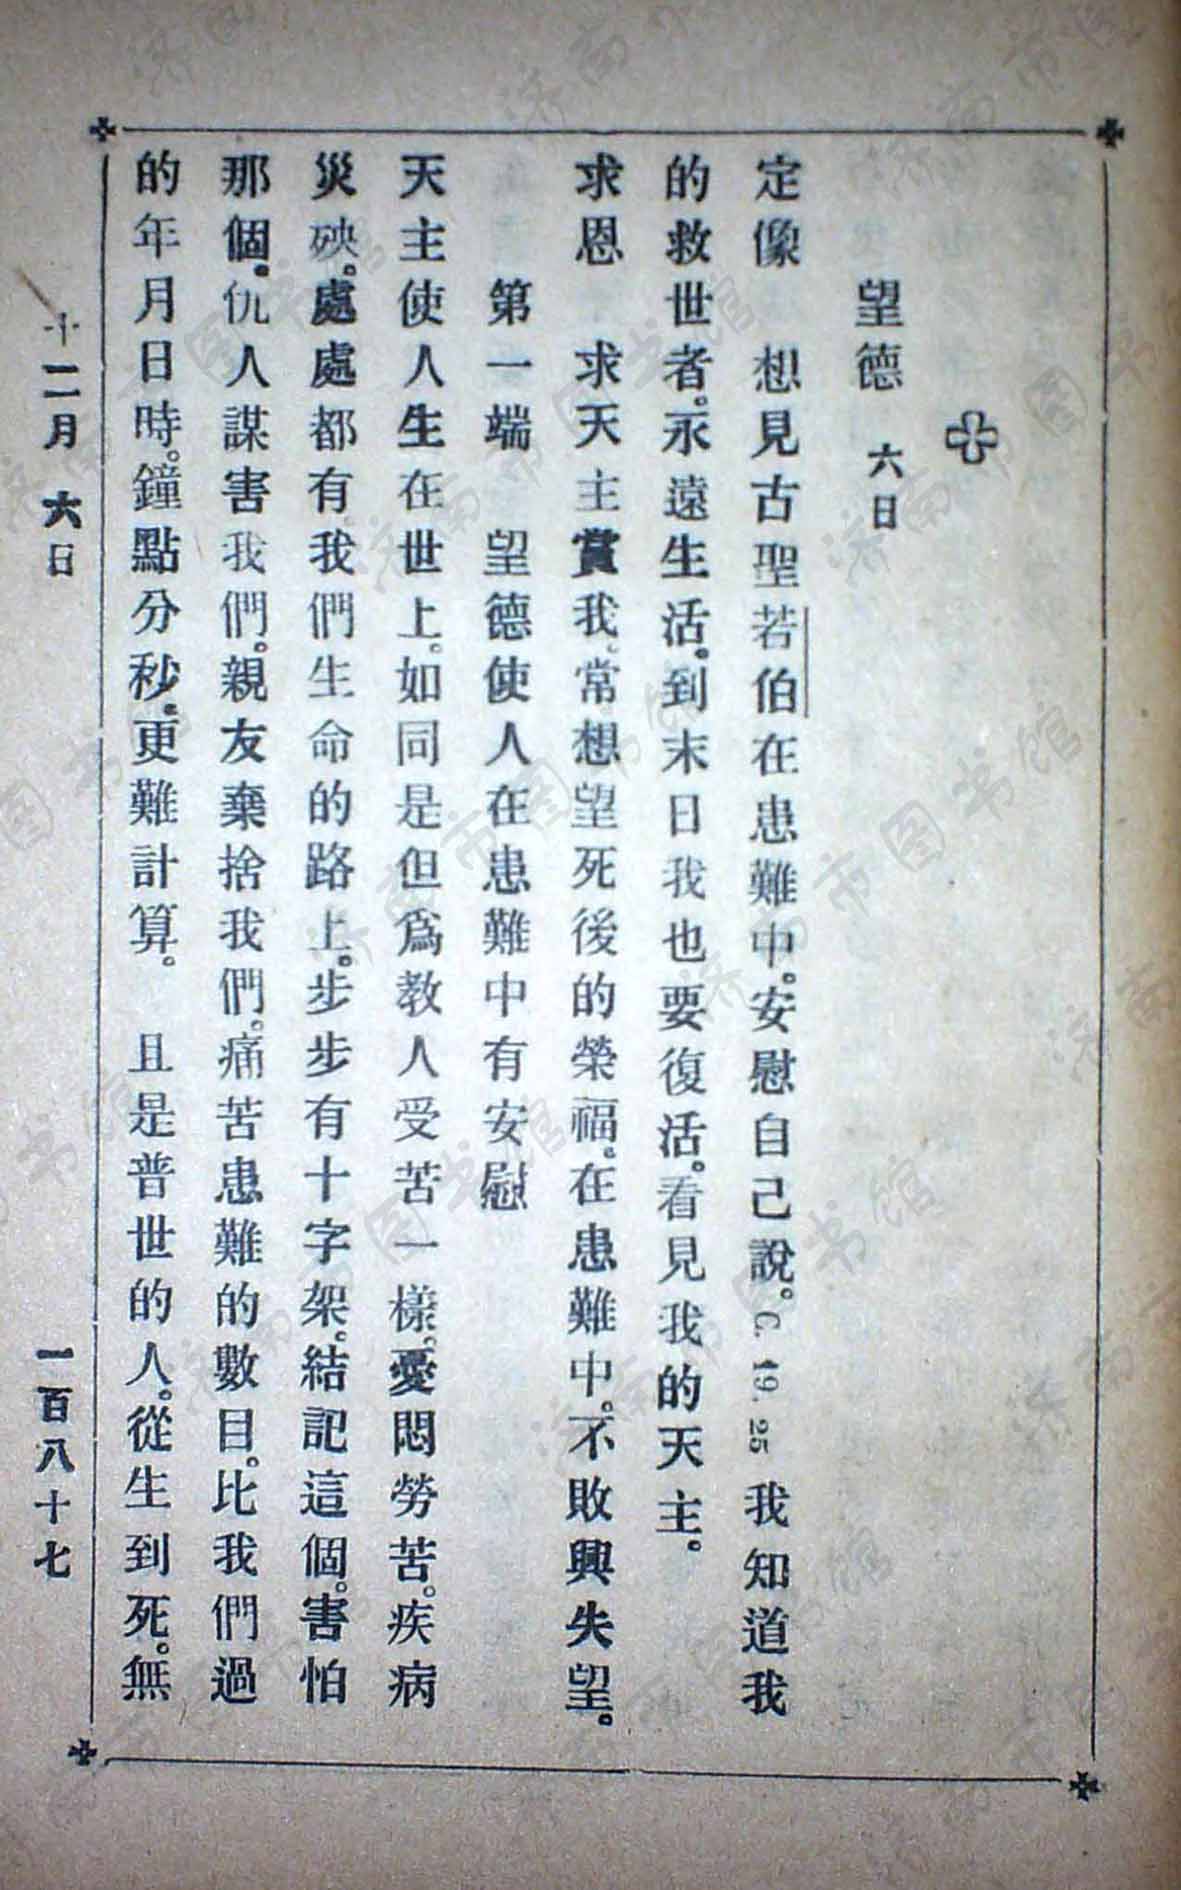 望德 六日
定像 想見古聖若伯在患難中。安慰自己說。C. 19. 25 我知道我
的救世者。永遠生活。到末日我也要復活。看見我的天主。
求恩 求天主賞我、常想望死後的榮福。在患難中。不敗興失望。
第一端 望德使人在患難中有安慰
天主使人生在世上。如同是但爲教人受苦一樣。憂悶勞苦。疾病
災殃。處處都有我們生命的路上。步步有十字架。結記這個。害怕
那個。仇人謀害我們。親友棄捨我們。痛苦患難的數目。比我們過
的年月日時。鐘點分秒。更難計算。 且是普世的人。從生到死。無
十二月 六日 一百八十七
济南市图书馆